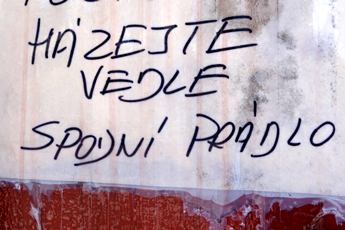 HÁZEJTE
VEDLE
SPODNÍ PRÁDLO